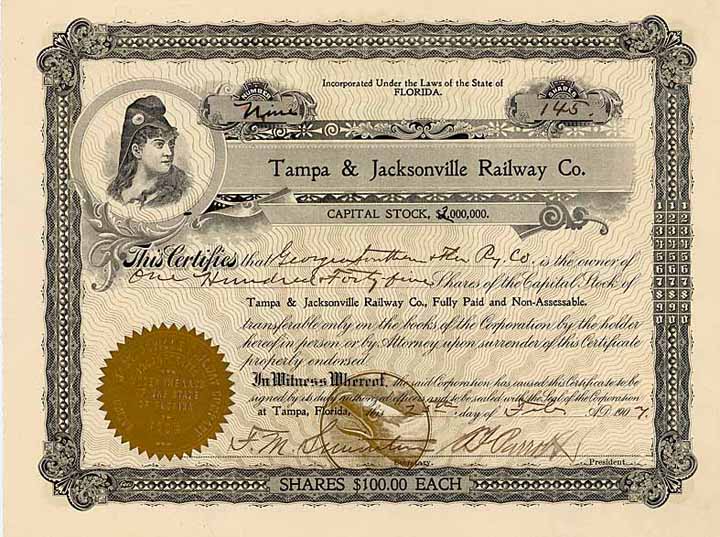 Incorporated Under the Laws of the State of
FLORIDA.
NUMBER
Nine
SHARES
145.
Tampa & Jacksonville Railway Co.
CAPITAL STOCK, $2,000,000.
This Certifies that Georgia Southern & Fla Ry. Co. is the owner of
One Hundred & Forty five Shares of the Capital Stock of
Tampa & Jacksonville Railway Co., Fully Paid and Non-Assessable.
transferable only on the books of the Corporation by the holder
hereof in person or by Attorney upon surrender of this Certificate
properly endorsed.
In Witness Whereof, the said Corporation has caused this Certificate to be
signed by its duly authorized officers and to be sealed with the Seal of the Corporation
at Tampa, Florida, this day of Feb A.D. 1907
F. M.
Secretary.
President.
SHARES $100.00 EACH